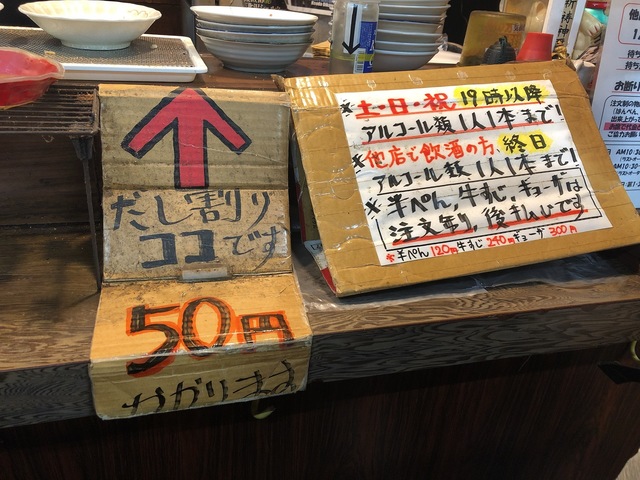 だし割り
ココです
50円
かかります
※土・日・祝 19時以降
アルコール類1人1本まで!
※他店で飲酒の方、終日
アルコール類1人1本まで!
※半ぺん、牛すじ、ギョーザは
注文制り、後払いです
※半ぺん120円牛すじ240円ギョーザ300円
祈待神
お断り
AM10:30
AM10:30